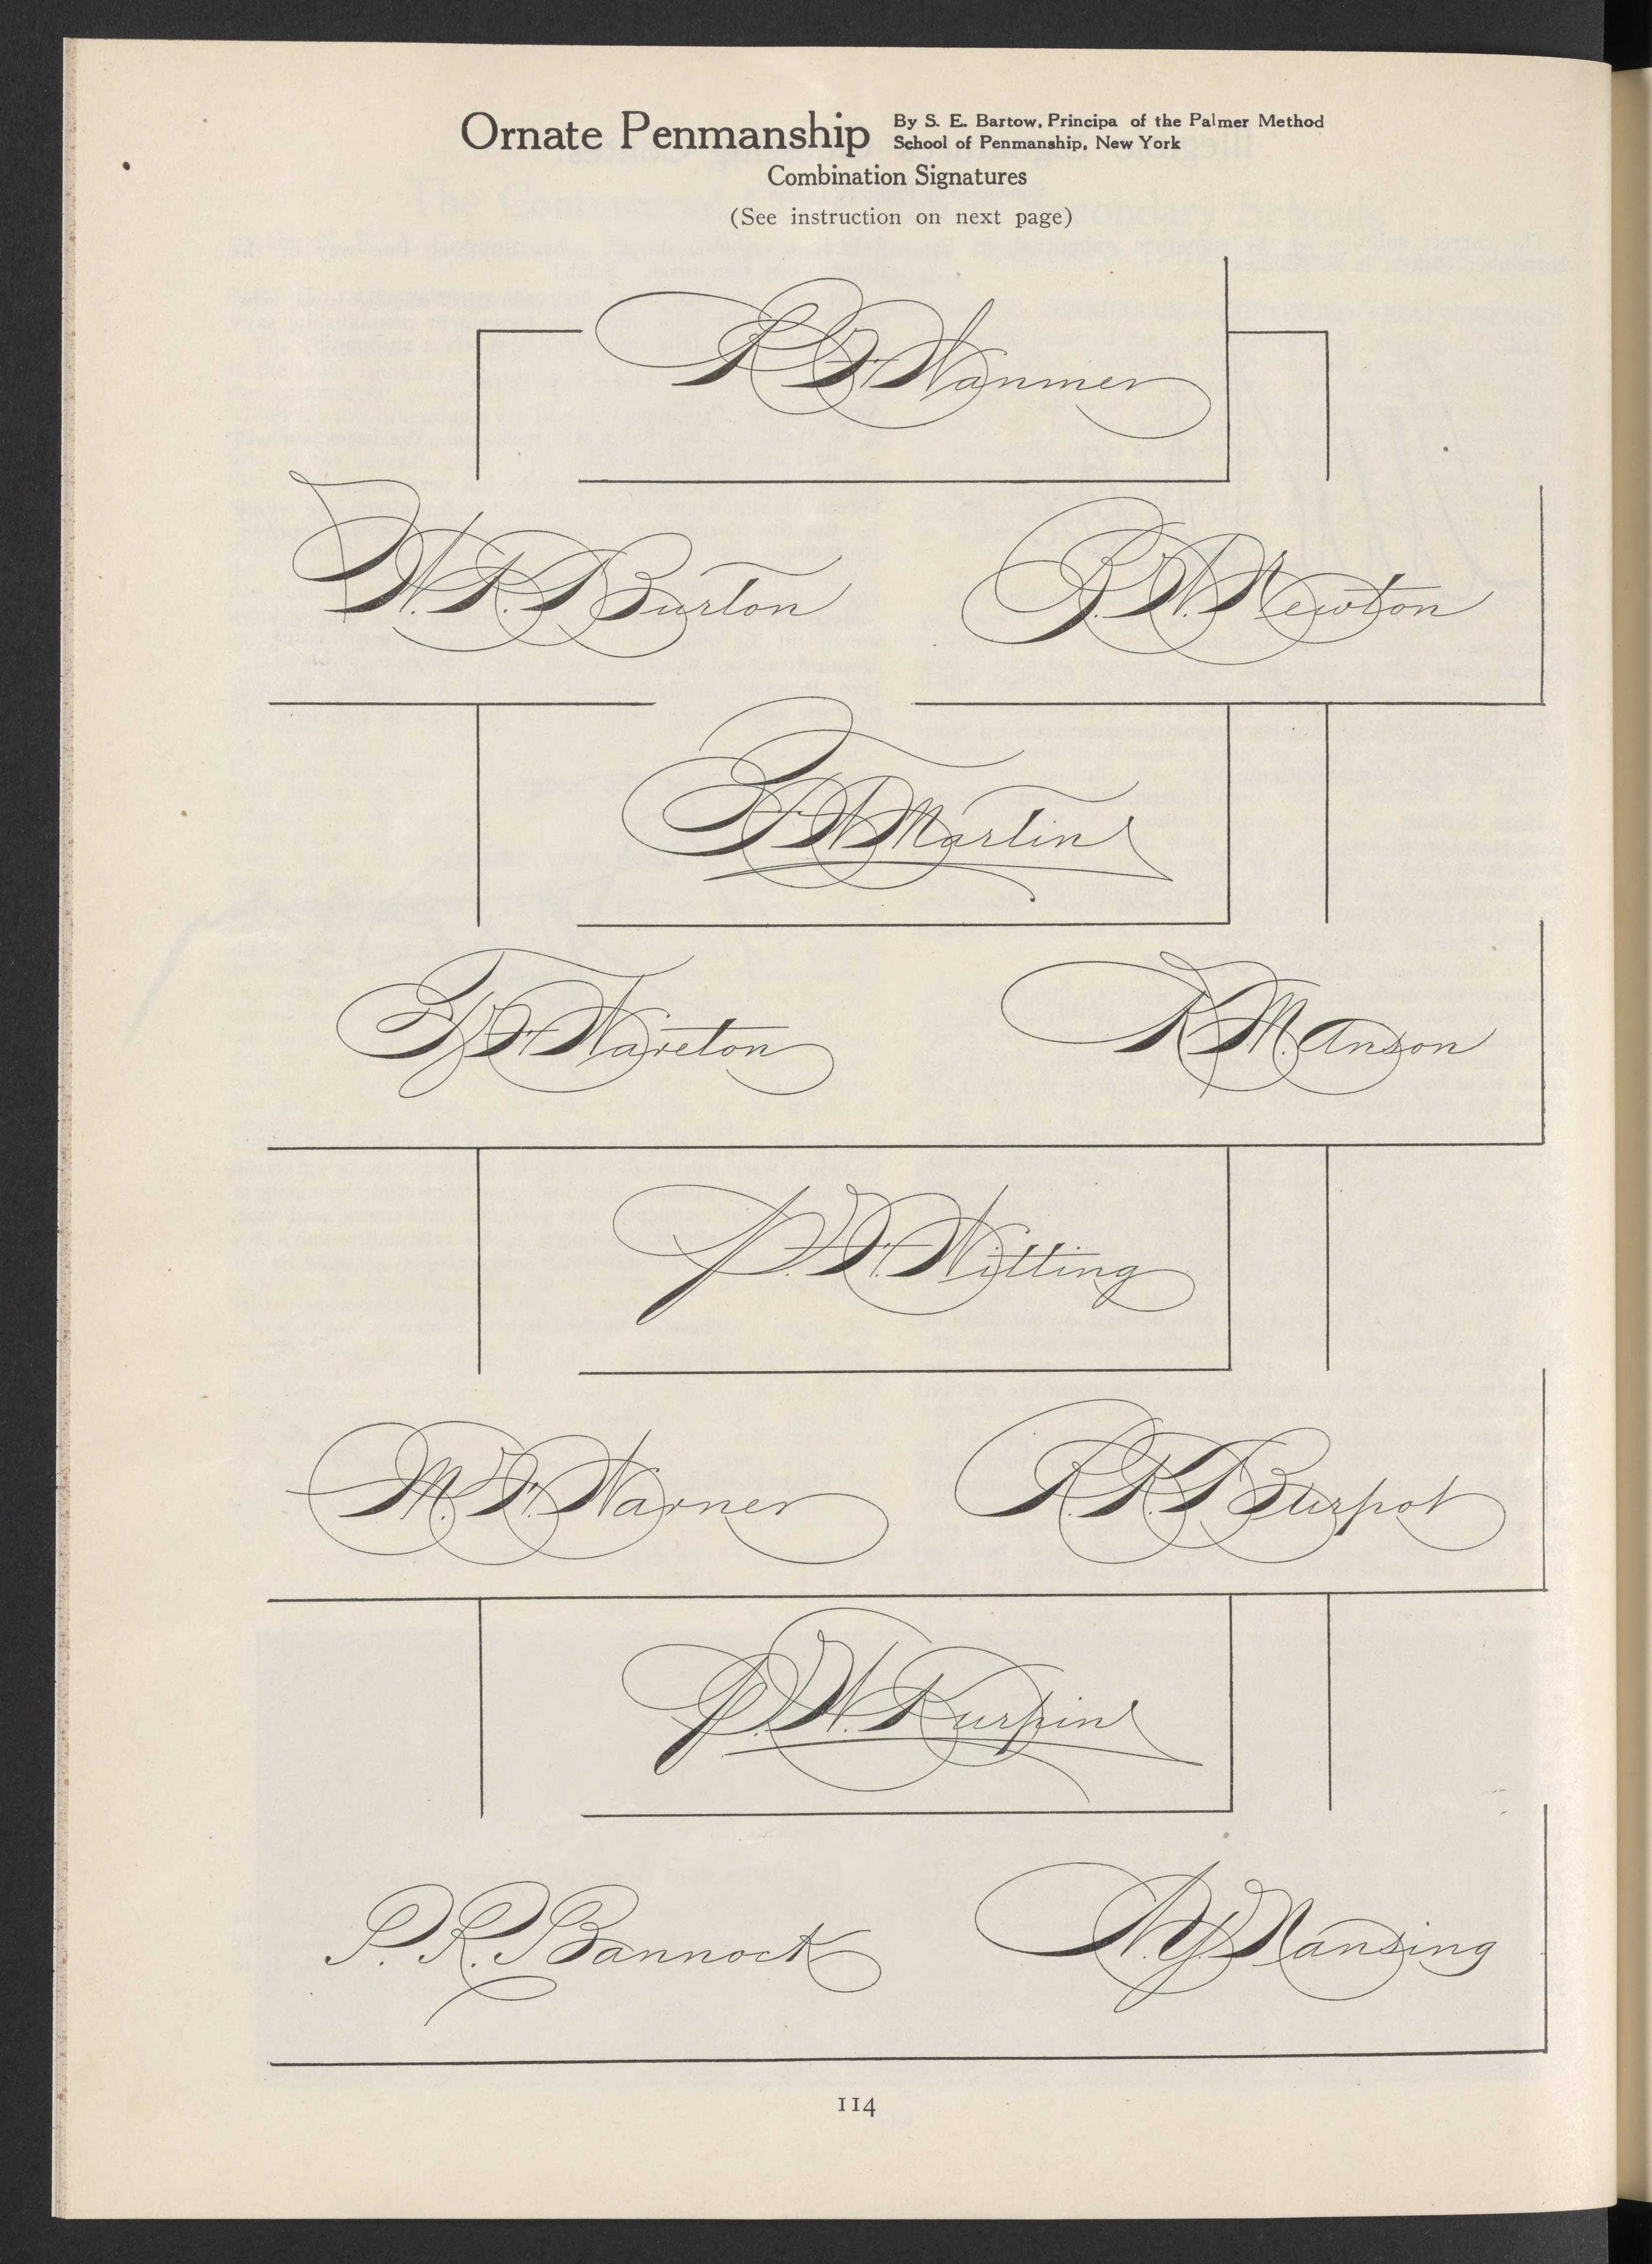 Ornate Penmanship
By S. E. Bartow, Principa of the Palmer Method
School of Penmanship, New York
Combination Signatures
(See instruction on next page)
Wanmer
W. R. Burton
R. W. Newton
T. W. Martin
Wareton
R. M. Anson
P. W. Witting
M. W. Warner
R. R. Burpot
P. W. Kurpin
P. R. Bannock
W. Y. Nansing
114